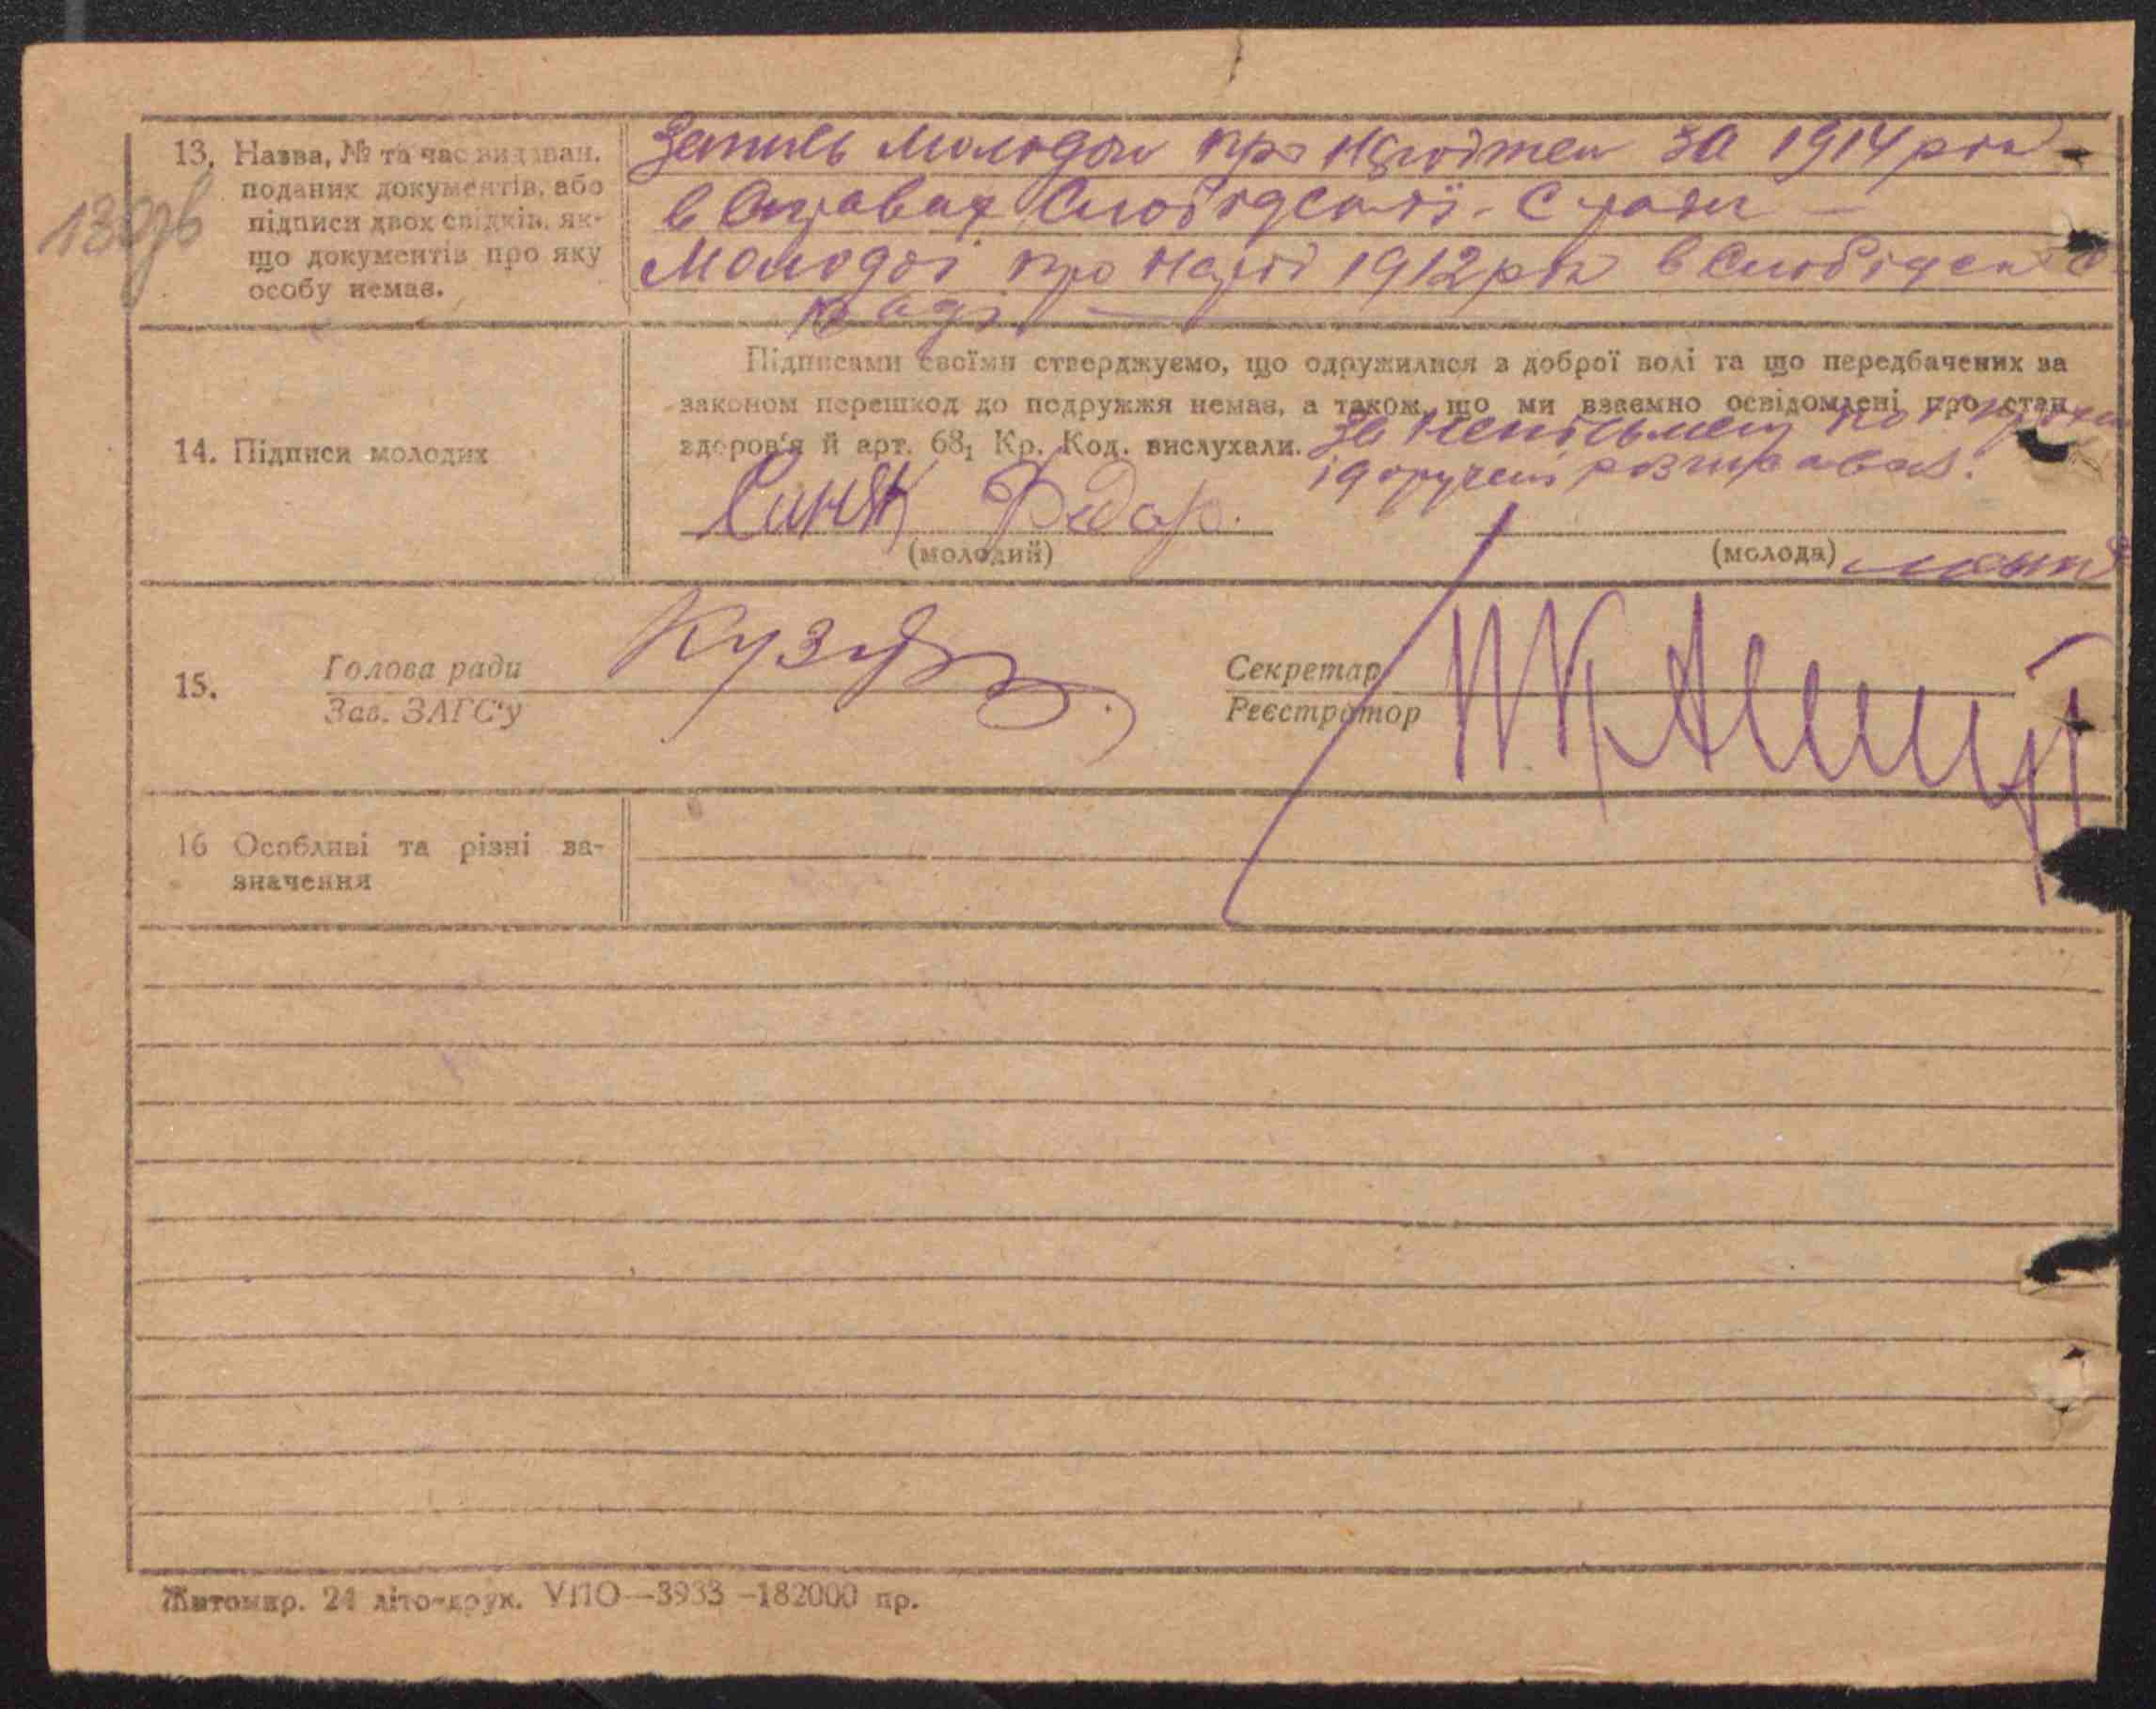 13. Назва, № та час видаван.
поданих документів, або
підписи двох свідків, як-
що документів про яку
особу немає.
Запись молодого про народжен за 1914 рік
в справах Слобідської С ради —
Молодої про народ 1912 рік в Слобідск С
раді —
Підписами своїми стверджуємо, що одружилися з доброї волі та що передбачених за
законом перешкод до подружжя немає, а також, що ми взаємно освідомлені про стан
здоров'я й арт. 68₁ Кр. Код. вислухали.
за неписьмену
14. Підписи молодих
Синяк Федор.
(молодий)
(молода)
15.
Голова ради
Зав. ЗАГС'у
Секретар
Реєстратор
16 Особливі та різні за-
значення
Житомир. 21 літо-друк. УПО—3933—182000 пр.